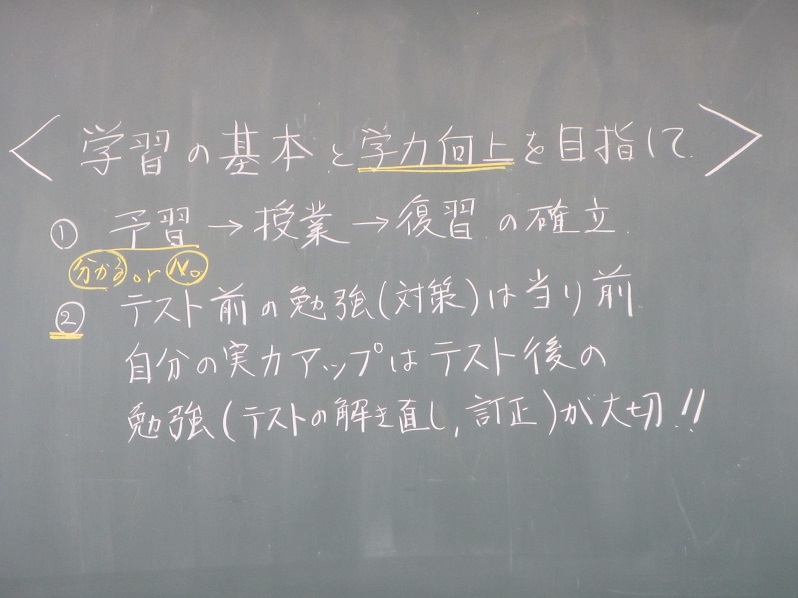 ＜学習の基本と学力向上を目指して＞
① 予習→授業→復習の確立
分かる or No
② テスト前の勉強(対策)は当り前
自分の実力アップはテスト後の
勉強(テストの解き直し,訂正)が大切!!